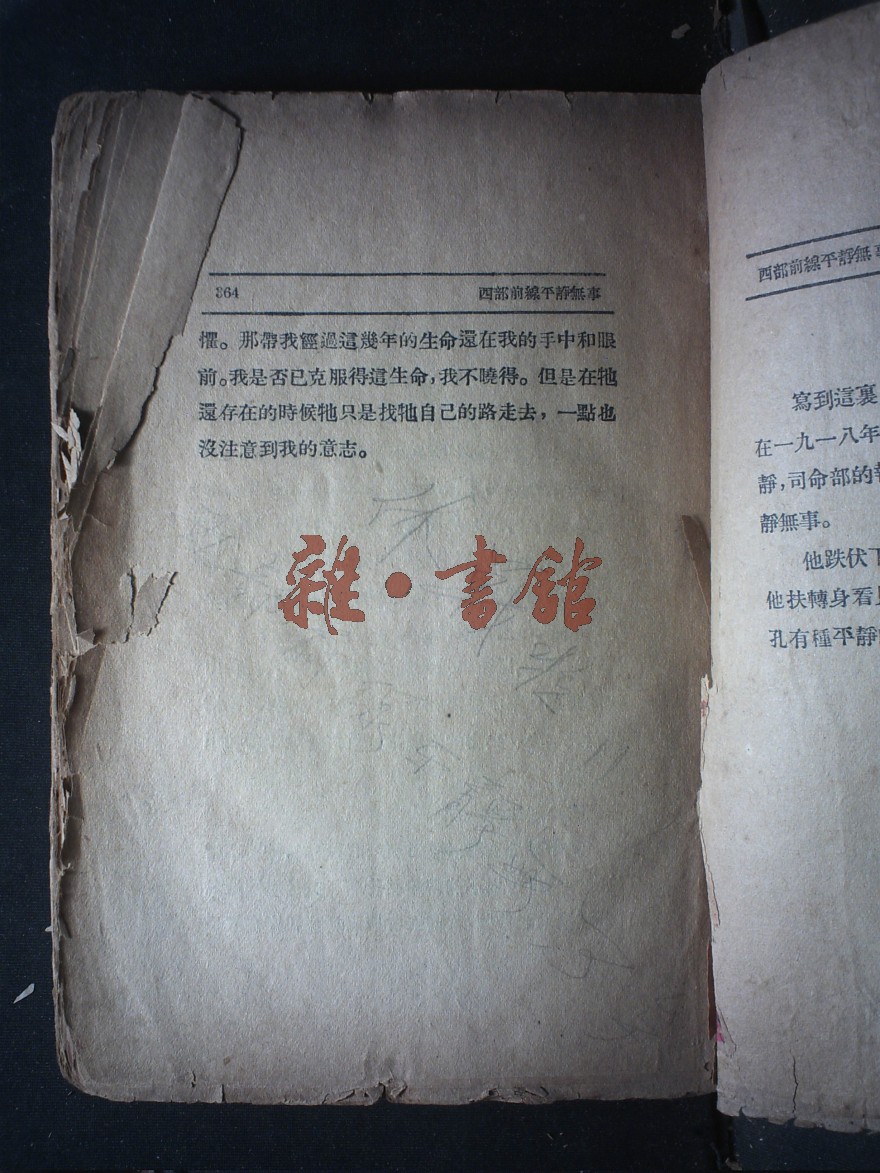 364 西部前線平靜無事
懼。那帶我經過這幾年的生命還在我的手中和眼
前。我是否已克服得這生命，我不曉得。但是在牠
還存在的時候牠只是找牠自己的路走去，一點也
沒注意到我的意志。
雜·書館
西部前線平靜無事
寫到這裏
在一九一八年
靜，司命部的
靜無事。
他跌伏下
他扶轉身看
孔有種平靜